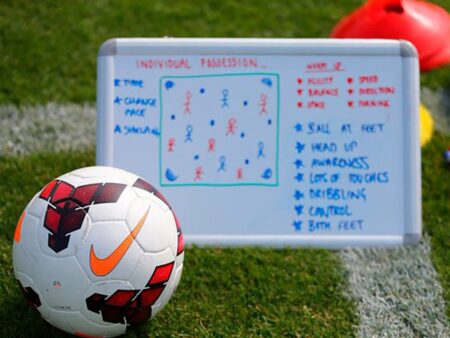 INDIVIDUAL POSSESSION...
TIME
CHANGE
PACE
WARM UP
AGILITY
SPEED
BALANCE
DIRECTION
SPACE
TURNING
BALL AT FEET
HEAD UP
AWARENESS
LOTS OF TOUCHES
DRIBBLING
CONTROL
BOTH FEET